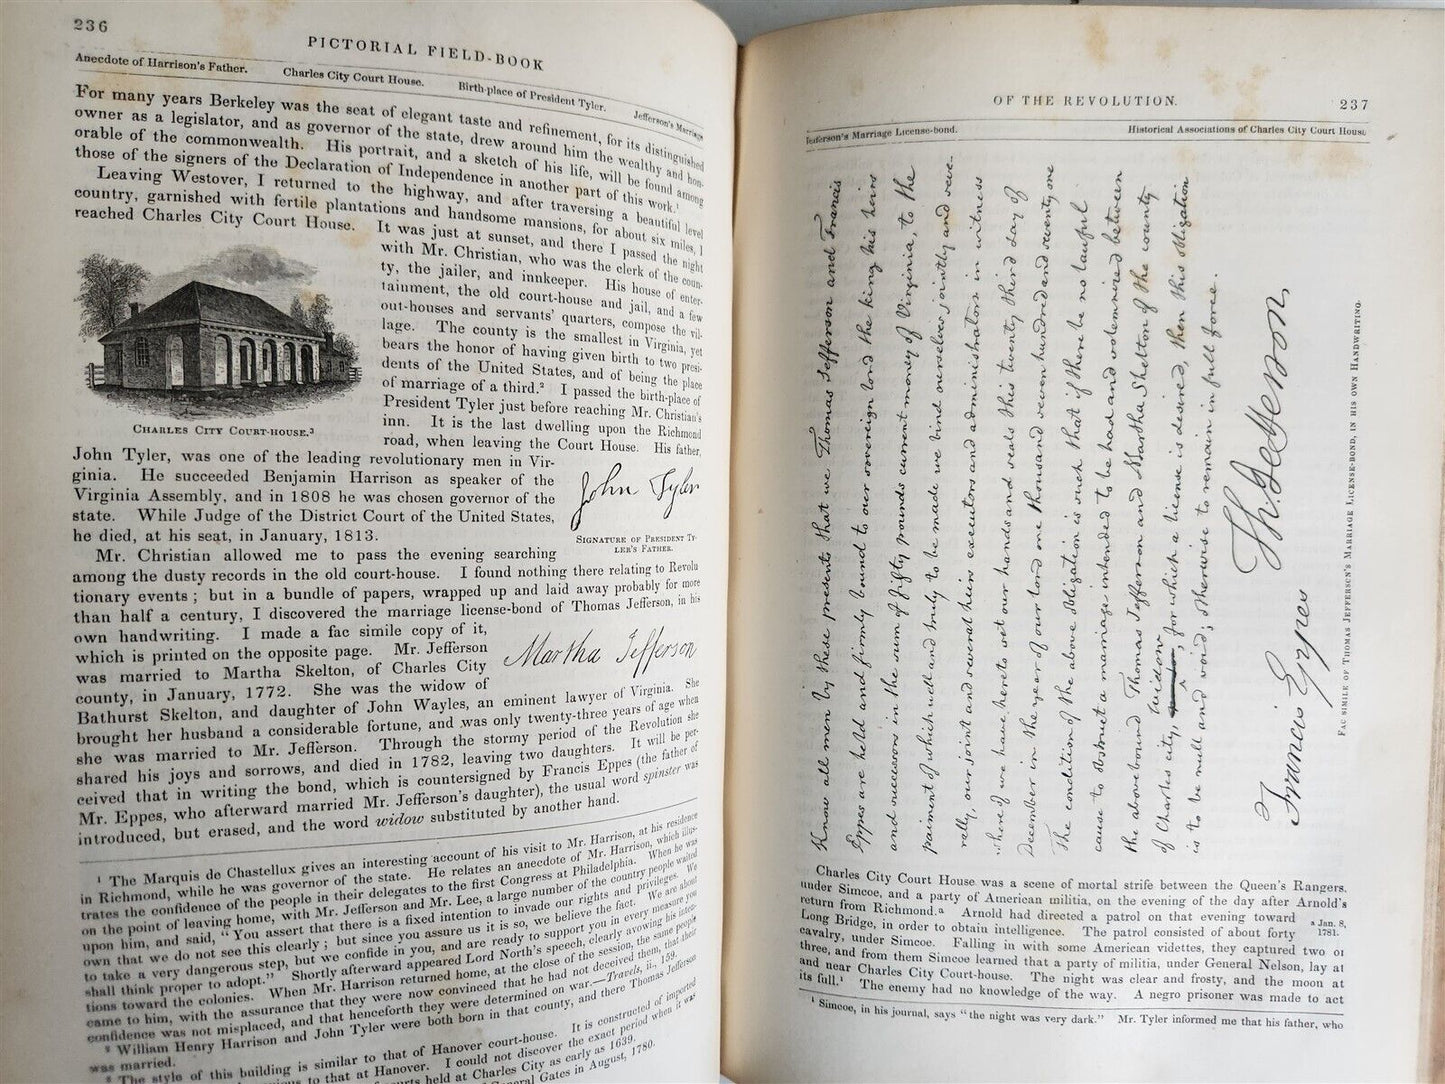 236
PICTORIAL FIELD-BOOK
Anecdote of Harrison's Father. Charles City Court House. Birth-place of President Tyler. Jefferson's Marriage
For many years Berkeley was the seat of elegant taste and refinement, for its distinguished
owner as a legislator, and as governor of the state, drew around him the wealthy and hon-
orable of the commonwealth. His portrait, and a sketch of his life, will be found among
those of the signers of the Declaration of Independence in another part of this work.¹
Leaving Westover, I returned to the highway, and after traversing a beautiful level
country, garnished with fertile plantations and handsome mansions, for about six miles, I
reached Charles City Court House. It was just at sunset, and there I passed the night
with Mr. Christian, who was the clerk of the coun-
ty, the jailer, and innkeeper. His house of enter-
tainment, the old court-house and jail, and a few
out-houses and servants' quarters, compose the vil-
lage. The county is the smallest in Virginia, yet
bears the honor of having given birth to two presi-
dents of the United States, and of being the place
of marriage of a third.² I passed the birth-place of
President Tyler just before reaching Mr. Christian's
inn. It is the last dwelling upon the Richmond
road, when leaving the Court House. His father,
CHARLES CITY COURT-HOUSE.³
John Tyler, was one of the leading revolutionary men in Vir-
ginia. He succeeded Benjamin Harrison as speaker of the
Virginia Assembly, and in 1808 he was chosen governor of the
state. While Judge of the District Court of the United States,
he died, at his seat, in January, 1813.
John Tyler
SIGNATURE OF PRESIDENT TY-
LER'S FATHER.
Mr. Christian allowed me to pass the evening searching
among the dusty records in the old court-house. I found nothing there relating to Revolu
tionary events; but in a bundle of papers, wrapped up and laid away probably for more
than half a century, I discovered the marriage license-bond of Thomas Jefferson, in his
own handwriting. I made a fac simile copy of it,
which is printed on the opposite page. Mr. Jefferson
was married to Martha Skelton, of Charles City
county, in January, 1772. She was the widow of
Martha Jefferson
Bathurst Skelton, and daughter of John Wayles, an eminent lawyer of Virginia. She
brought her husband a considerable fortune, and was only twenty-three years of age when
she was married to Mr. Jefferson. Through the stormy period of the Revolution she
shared his joys and sorrows, and died in 1782, leaving two daughters. It will be per-
ceived that in writing the bond, which is countersigned by Francis Eppes (the father of
Mr. Eppes, who afterward married Mr. Jefferson's daughter), the usual word spinster was
introduced, but erased, and the word widow substituted by another hand.
¹ The Marquis de Chastellux gives an interesting account of his visit to Mr. Harrison, at his residence
in Richmond, while he was governor of the state. He relates an anecdote of Mr. Harrison, which illus-
trates the confidence of the people in their delegates to the first Congress at Philadelphia. When he was
on the point of leaving home, with Mr. Jefferson and Mr. Lee, a large number of the country people waited
upon him, and said, "You assert that there is a fixed intention to invade our rights and privileges. We
own that we do not see this clearly; but since you assure us it is so, we believe the fact. We are about
to take a very dangerous step, but we confide in you, and are ready to support you in every measure you
shall think proper to adopt." Shortly afterward appeared Lord North's speech, clearly avowing his inten-
tions toward the colonies. When Mr. Harrison returned home, at the close of the session, the same people
came to him, with the assurance that they were now convinced that he had not deceived them, that their
confidence was not misplaced, and that henceforth they were determined on war.—Travels, ii., 159.
² William Henry Harrison and John Tyler were both born in that county, and there Thomas Jefferson
was married.
³ The style of this building is similar to that of Hanover court-house. It is constructed of imported
to that at Hanover. I could not discover the exact period when it was
courts held at Charles City as early as 1639.
General Gates in August, 1780.
OF THE REVOLUTION.
237
Jefferson's Marriage License-bond. Historical Associations of Charles City Court House
Know all men by these presents that we Thomas Jefferson and Francis
Eppes are held and firmly bound to our sovereign lord the king his heirs
and successors in the sum of fifty pounds current money of Virginia, to the
paiment of which well and truly to be made we bind ourselves jointly and seve-
rally, our joint and several heirs executors and administrators in witness
whereof we have hereto set our hands and seals this twenty third day of
December in the year of our lord one thousand seven hundred and seventy one
The condition of the above obligation is such that if there be no lawful
cause to obstruct a marriage intended to be had and solemnized between
the abovebound Thomas Jefferson and Martha Skelton of the county
widow
of Charles city, for which a license is desired, then this obligation
is to be null and void; otherwise to remain in full force.
Th. Jefferson
Francis Eppes
FAC SIMILE OF THOMAS JEFFERSON'S MARRIAGE LICENSE-BOND, IN HIS OWN HANDWRITING.
Charles City Court House was a scene of mortal strife between the Queen's Rangers,
under Simcoe, and a party of American militia, on the evening of the day after Arnold's
return from Richmond.ᵃ Arnold had directed a patrol on that evening toward
ᵃ Jan. 8,
1781.
Long Bridge, in order to obtain intelligence. The patrol consisted of about forty
cavalry, under Simcoe. Falling in with some American videttes, they captured two or
three, and from them Simcoe learned that a party of militia, under General Nelson, lay at
and near Charles City Court-house. The night was clear and frosty, and the moon at
its full.¹ The enemy had no knowledge of the way. A negro prisoner was made to act
¹ Simcoe, in his journal, says "the night was very dark." Mr. Tyler informed me that his father, who